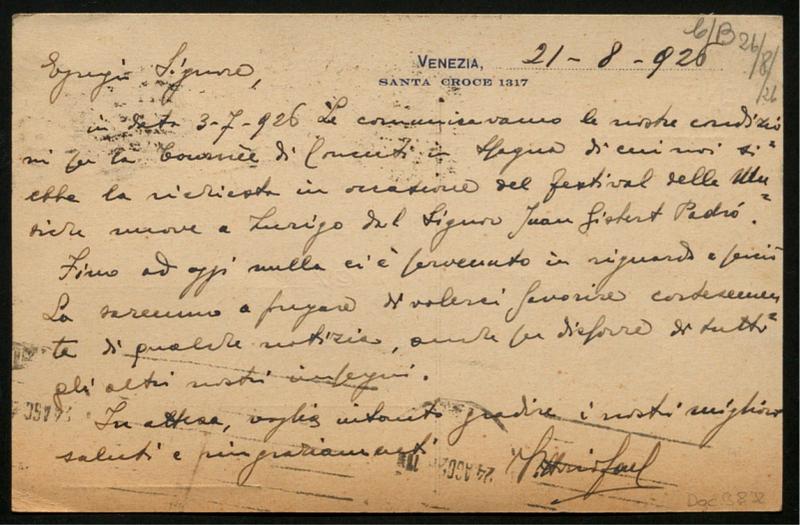 C/B 26/8/26
VENEZIA, 21-8-926
SANTA CROCE 1317
Egregio Signore,
in data 3-7-926 Le comunicavamo le nostre condizio
ni per la tournée di Concerti in Spagna di cui noi si=
ebbe la richiesta in occasione del festival delle Mu=
siche nuove a Zurigo dal Signor Juan Gisbert Padró.
Fino ad oggi nulla ci è pervenuto in riguardo e perciò
La saremmo a pregare di volerci favorire cortesemen
te di qualche notizia, anche per disporre di tutti
gli altri nostri impegni.
In attesa, voglia intanto gradire i nostri migliori
saluti e ringraziamenti
24 AGO